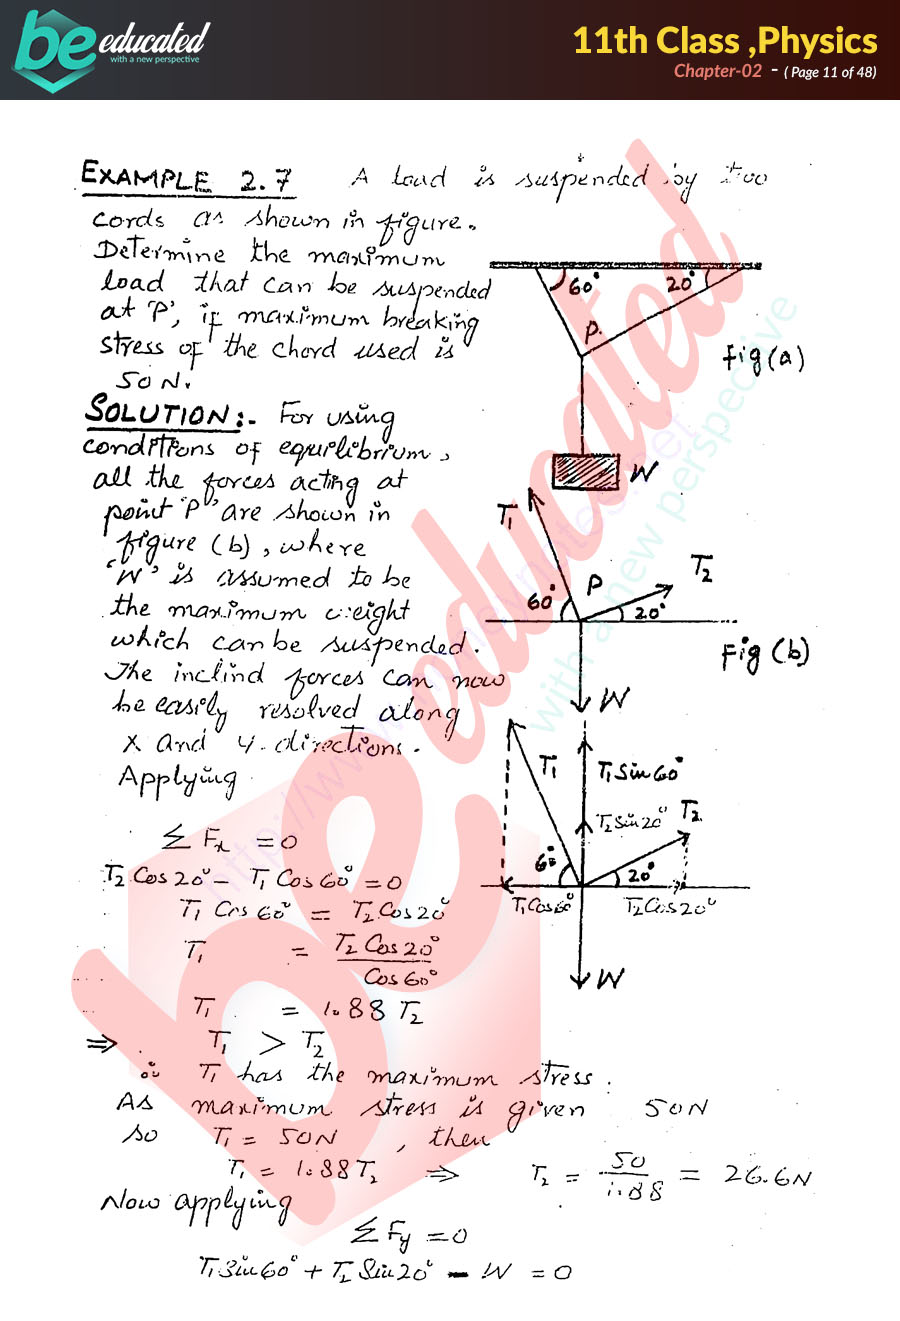 be educated
with a new perspective
11th Class ,Physics
Chapter-02 - ( Page 11 of 48)
EXAMPLE 2.7 A load is suspended by two
cords as shown in figure.
Determine the maximum
load that can be suspended
at 'P', if maximum breaking
stress of the chord used is
50 N.
60° 20°
P.
Fig (a)
W
SOLUTION:- For using
conditions of equilibrium,
all the forces acting at
point 'P' are shown in
figure (b), where
'W' is assumed to be
the maximum weight
which can be suspended.
The inclind forces can now
be easily resolved along
x and y-directions.
Applying
T1
T2
60° P 20°
Fig (b)
W
T1 T1 Sin 60°
T2 Sin 20° T2
60° 20°
T1 Cos 60° T2 Cos 20°
W
Σ Fx = 0
T2 Cos 20° - T1 Cos 60° = 0
T1 Cos 60° = T2 Cos 20°
T1 = T2 Cos 20° / Cos 60°
T1 = 1.88 T2
⇒ T1 > T2
∴ T1 has the maximum stress.
As maximum stress is given 50N
so T1 = 50N , then
T1 = 1.88 T2 ⇒ T2 = 50 / 1.88 = 26.6N
Now applying
Σ Fy = 0
T1 Sin 60° + T2 Sin 20° - W = 0
be educated
with a new perspective